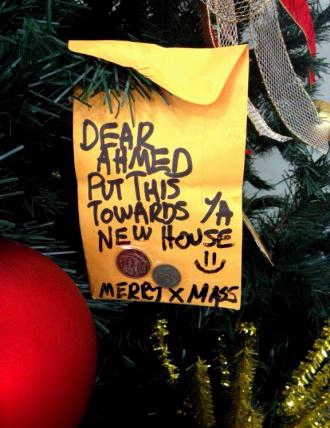 DEAR
AHMED
PUT THIS
TOWARDS YA
NEW HOUSE
MERRY X MASS